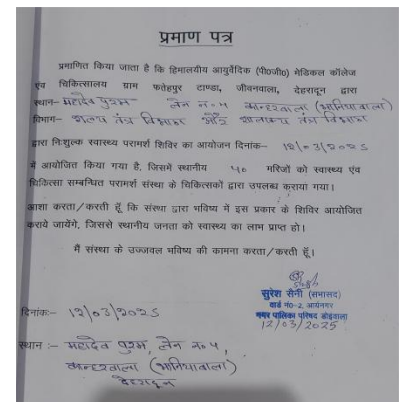 प्रमाण पत्र
प्रमाणित किया जाता है कि हिमालयीय आयुर्वेदिक (पी०जी०) मेडिकल कॉलेज
एवं चिकित्सालय ग्राम फतेहपुर टाण्डा, जीवनवाला, देहरादून द्वारा
स्थान– महादेव पुरम लेन न० ५ कान्हरवाला (भानियावाला)
विभाग– शल्य तंत्र विभाग और शालाक्य तंत्र विभाग
द्वारा निःशुल्क स्वास्थ्य परामर्श शिविर का आयोजन दिनांक– 12/03/2025
में आयोजित किया गया है, जिसमें स्थानीय ५० मरिजों को स्वास्थ्य एवं
चिकित्सा सम्बन्धित परामर्श संस्था के चिकित्सकों द्वारा उपलब्ध कराया गया।
आशा करता/करती हूँ कि संस्था द्वारा भविष्य में इस प्रकार के शिविर आयोजित
कराये जायेंगे, जिससे स्थानीय जनता को स्वास्थ्य का लाभ प्राप्त हो।
मैं संस्था के उज्जवल भविष्य की कामना करता/करती हूँ।
सुरेश सैनी (सभासद)
वार्ड नं०-2, आर्यनगर
नगर पालिका परिषद डोईवाला
12/03/2025
दिनांक:– 12/03/2025
स्थान :– महादेव पुरम, लेन न० ५,
कान्हरवाला (भानियावाला)
देहरादून